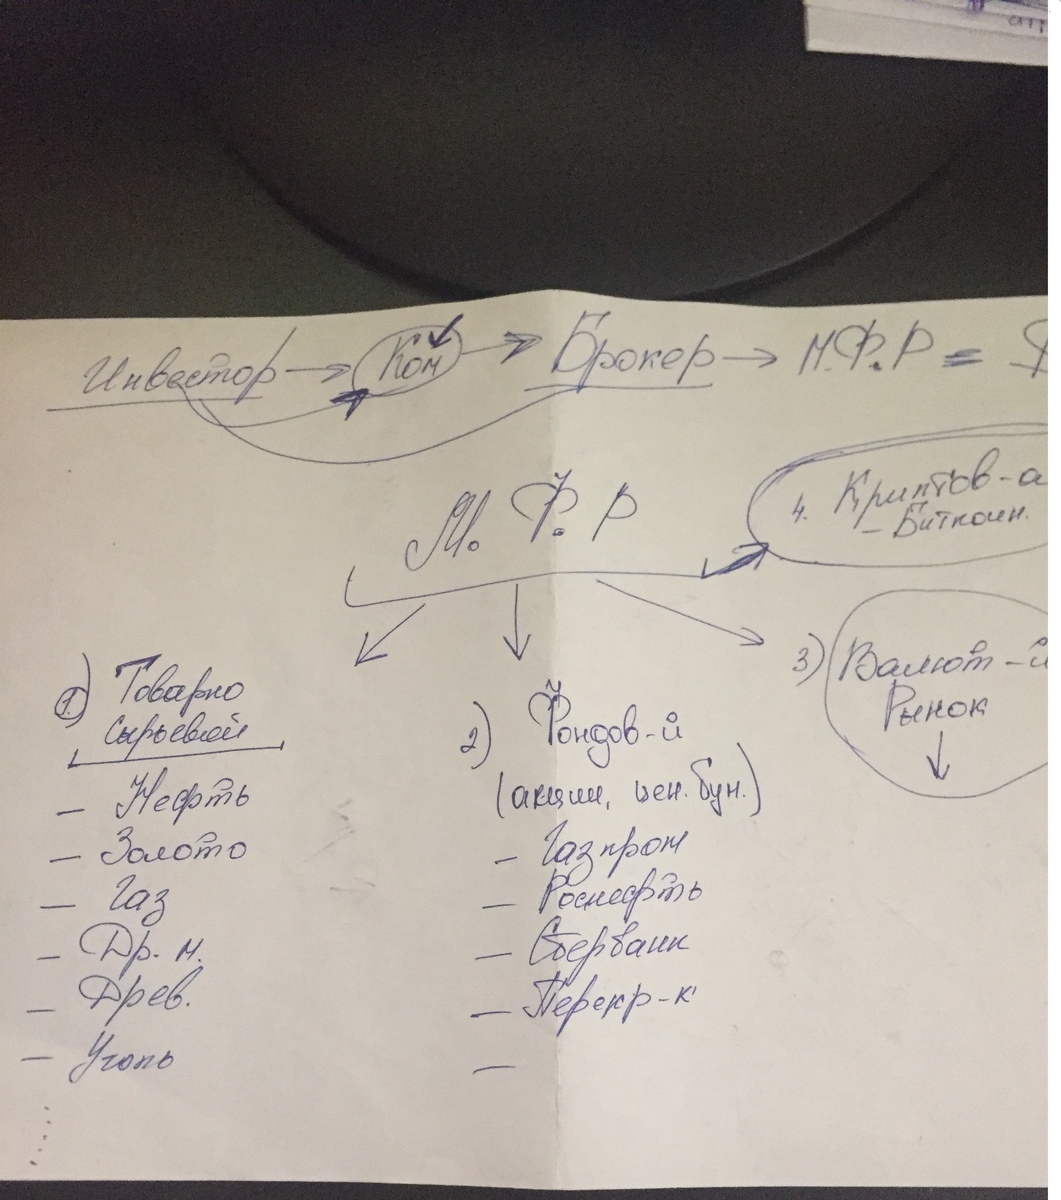 Инвестор → Ком → Брокер → М.Ф.Р =
М. Ф. Р
4. Криптов-а
– Биткоин.
1.) Товарно
сырьевой
– Нефть
– Золото
– Газ
– Др. м.
– Древ.
– Уголь
2) Фондов-й
(акции, цен. бум.)
– Газпром
– Роснефть
– Сбербанк
– Перекр-к
–
3) Валют-й
Рынок